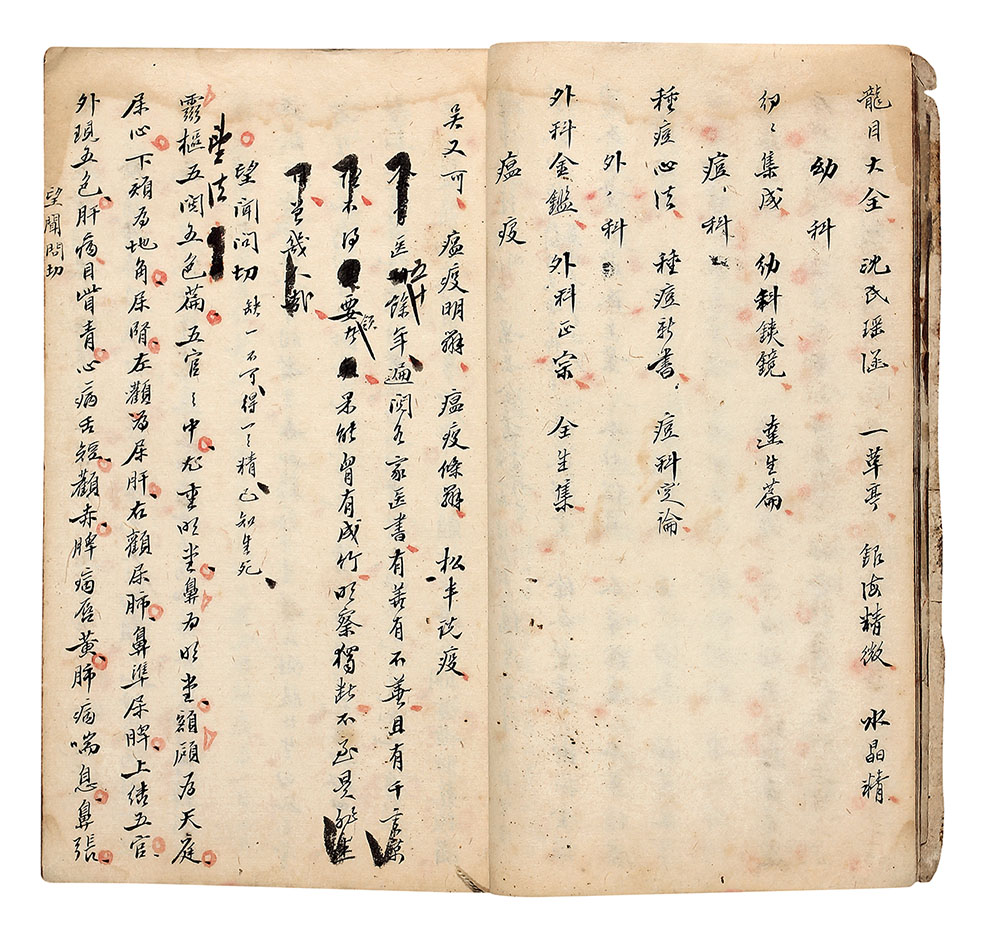 龍目大全 沈氏瑶函 一草亭 銀海精微 水晶精
幼科
幼々集成 幼科鉄鏡 達生篇
痘科
種痘心法 種痘新書 痘科定論
外科
外科金鑑 外科正宗 全生集
瘟疫
吴又可 瘟疫明辨 瘟疫條辨 松丰説疫
医五十餘年遍閱各家医書有善有不善且有千
要 果能胷有成竹明察獨断不至
望聞問切 缺一不可得一之精亡知生死
望法
靈樞五閱五色篇五官之中尤重明堂鼻为明堂額顱为天庭
屬心下頦为地角屬腎左顴为屬肝右顴屬肺鼻準屬脾上结五官
外現五色肝病目眥青心病舌短顴赤脾病唇黄肺病喘息鼻張
望聞問切